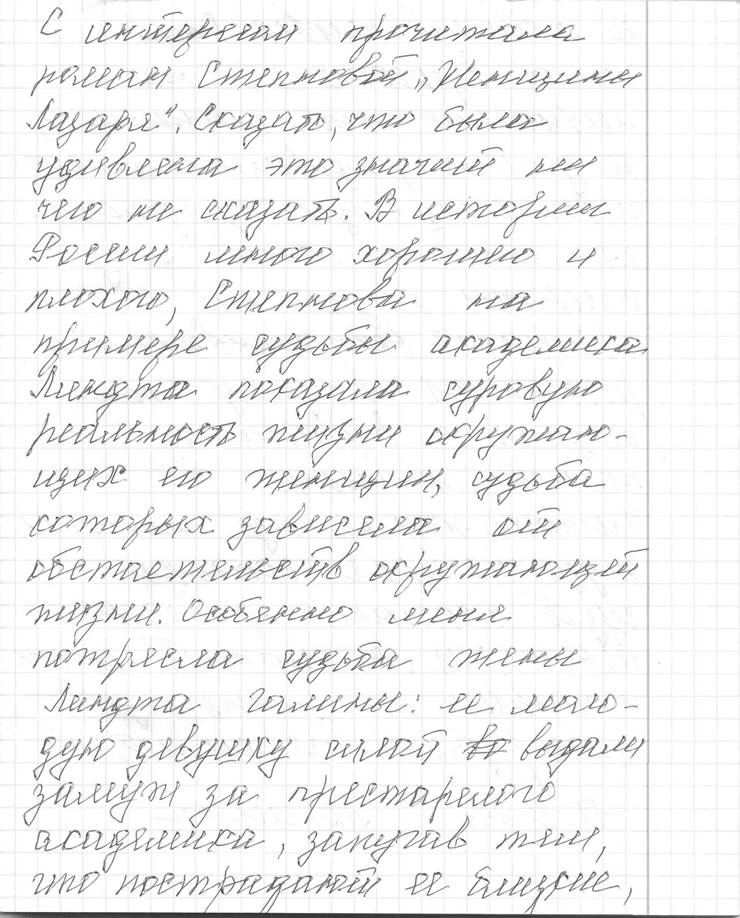 С интересом прочитала
роман Степновой „Женщины
Лазаря“. Сказать, что была
удивлена это значит ни
чего не сказать. В истории
России много хорошего и
плохого, Степнова на
примере судьбы академика
Линдта показала суровую
реальность жизни окружаю-
щих его женщин, судьба
которых зависела от
обстоятельств окружающей
жизни. Особенно меня
потрясла судьба жены
Линдта Галины: ее моло-
дую девушку силой выдали
замуж за престарелого
академика, запугав тем,
что пострадают ее близкие,